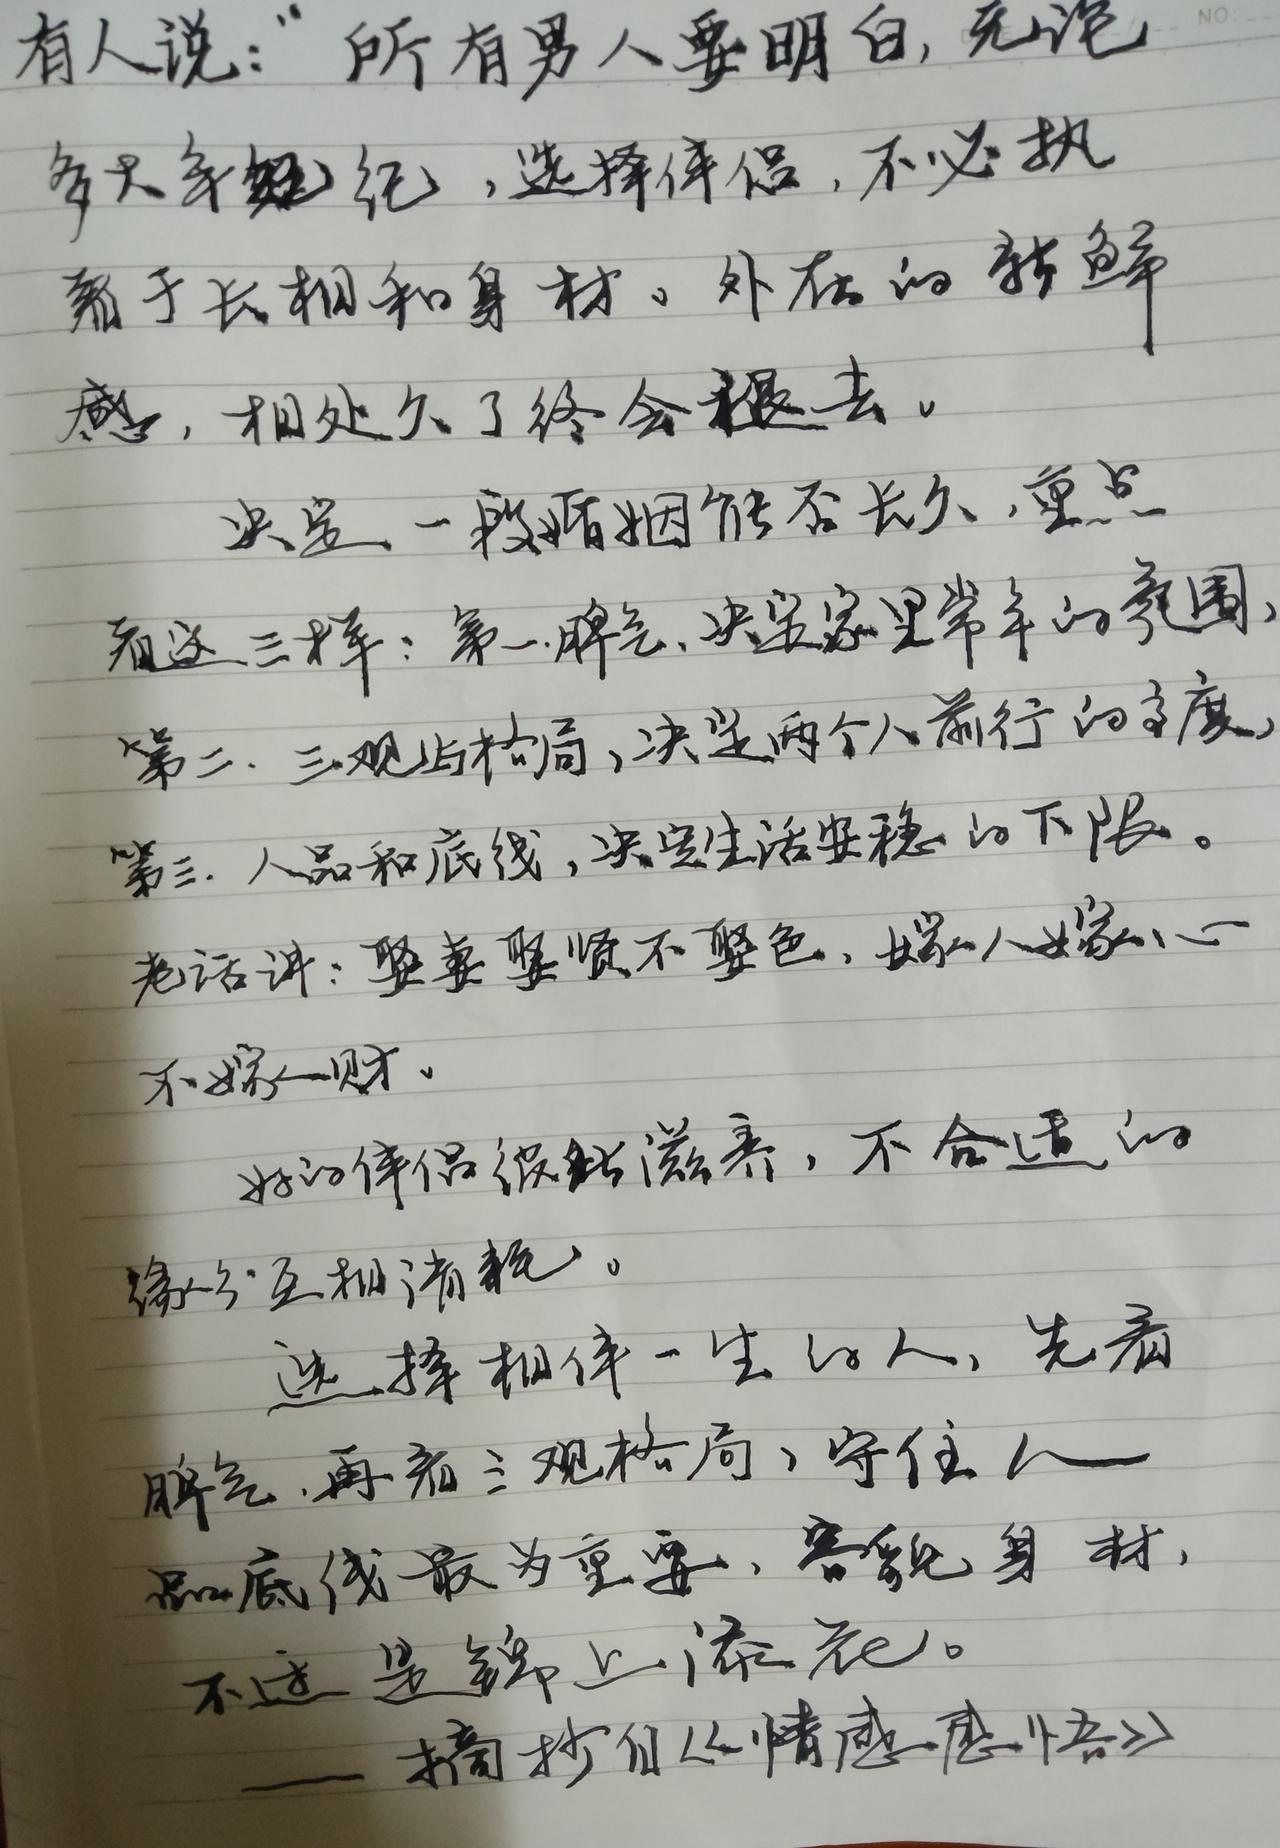 NO:
有人说:“所有男人要明白,无论
多大年纪,选择伴侣,不必执
着于长相和身材。外在的新鲜
感,相处久了终会褪去。
决定一段婚姻能否长久,重点
看这三样:第一.脾气、决定家里常年的氛围,
第二.三观与格局,决定两个人前行的高度,
第三.人品和底线,决定生活安稳的下限。
老话讲:娶妻娶贤不娶色,嫁人嫁心
不嫁财。
好的伴侣彼此滋养,不合适的
缘分互相消耗。
选择相伴一生的人,先看
脾气.再看三观格局,守住人
品底线最为重要,容貌身材,
不过是锦上添花。
——摘抄自《情感感悟》